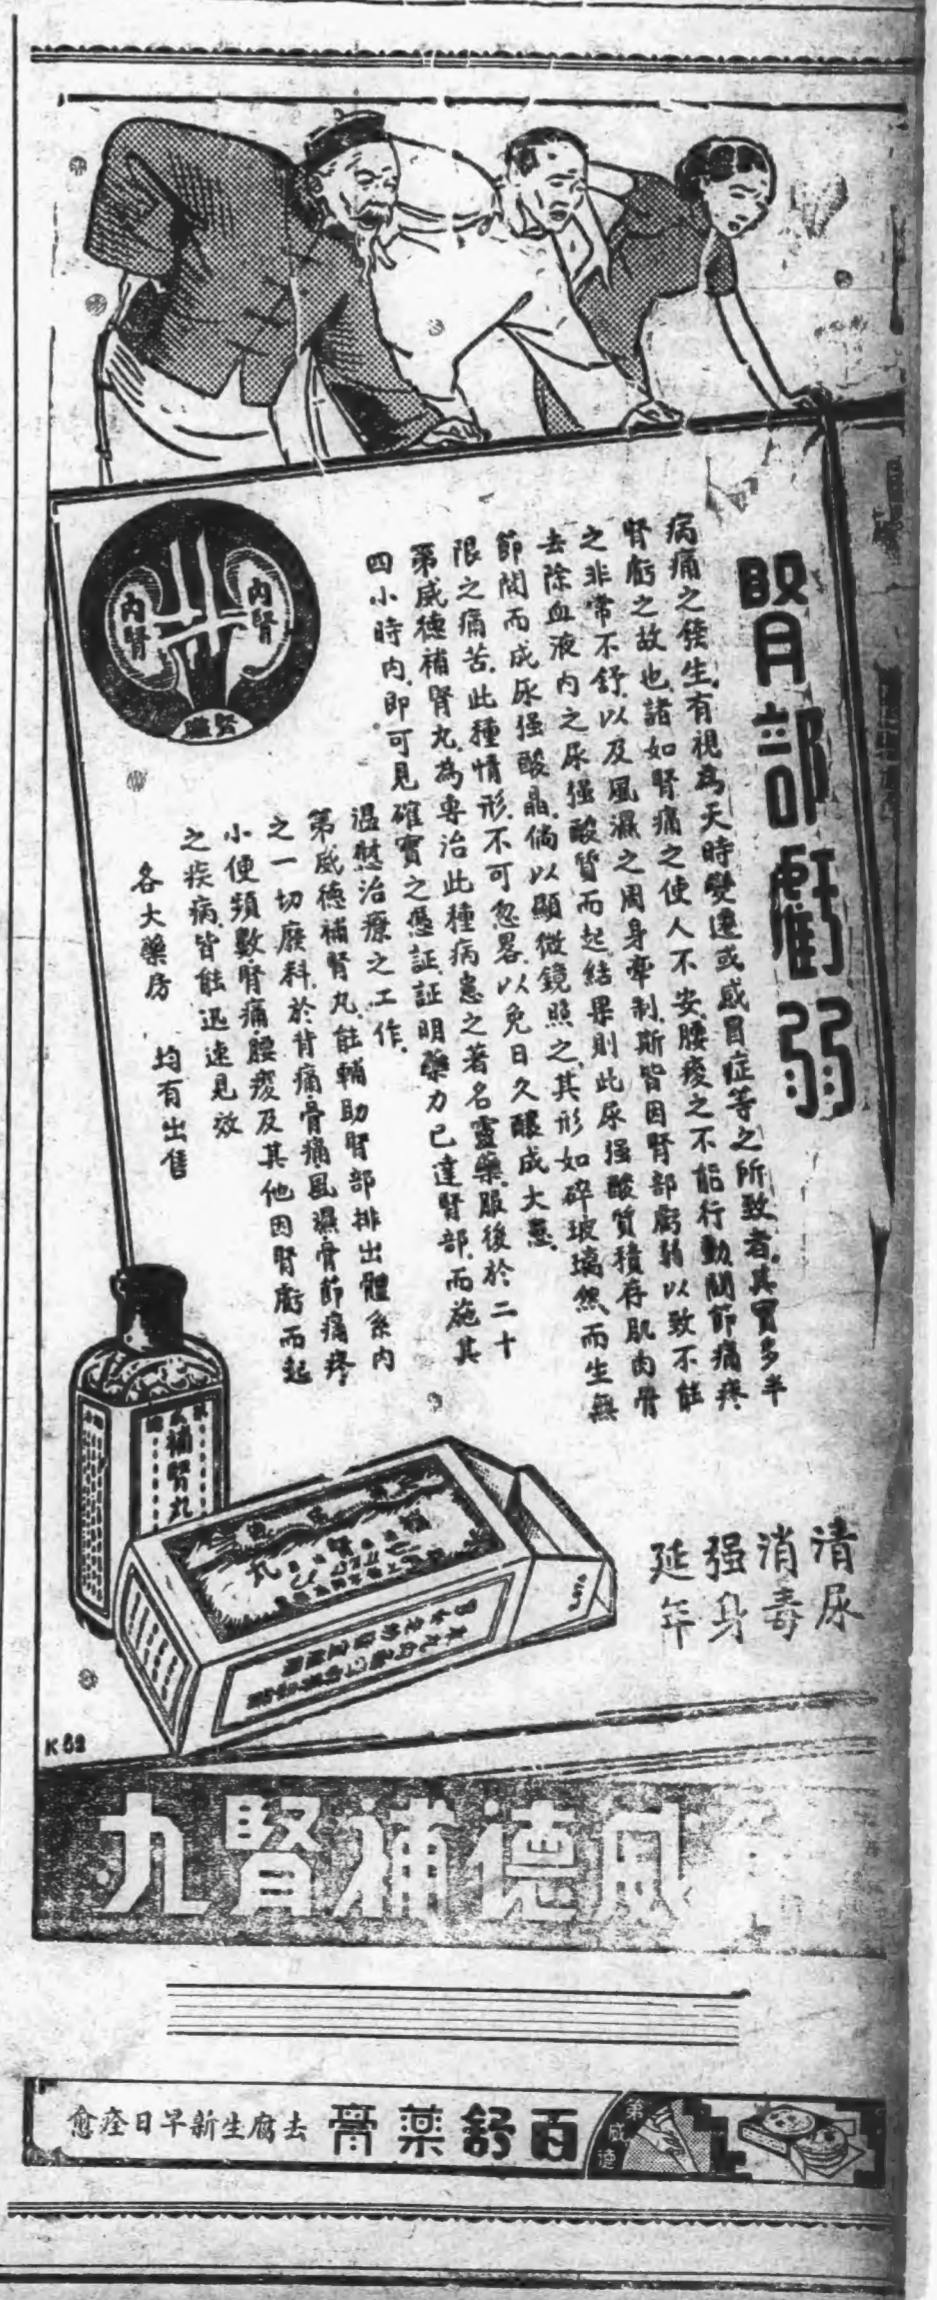 腎部虧弱
病痛之發生，有視為天時變遷或感冒症等之所致者，其實多半
腎虧之故也，諸如腎痛之使人不安，腰痠之不能行動，關節痛疼
之非常不舒，以及風濕之周身牽制，斯皆因腎部虧弱以致不能
去除血液內之尿强酸質而起，結果則此尿强酸質積存肌肉骨
節間而成尿强酸晶，倘以顯微鏡照之，其形如碎玻璃然，而生無
限之痛苦，此種情形，不可忽畧，以免日久釀成大患。
第威德補腎丸，為專治此種病患之著名靈藥，服後於二十
四小時內，即可見確實之憑証，証明藥力已達腎部，而施其
溫慰治療之工作。
第威德補腎丸，能輔助腎部排出體系內
之一切廢料，於背痛骨痛風濕骨節痛疼，
小便頻數腎痛腰痠及其他因腎虧而起
之疾病，皆能迅速見效
各大藥房　均有出售
內腎
內腎
清尿
消毒
强身
延年
補腎丸
K 52
威德補腎丸
第威德
百舒藥膏
去腐生新早日痊愈